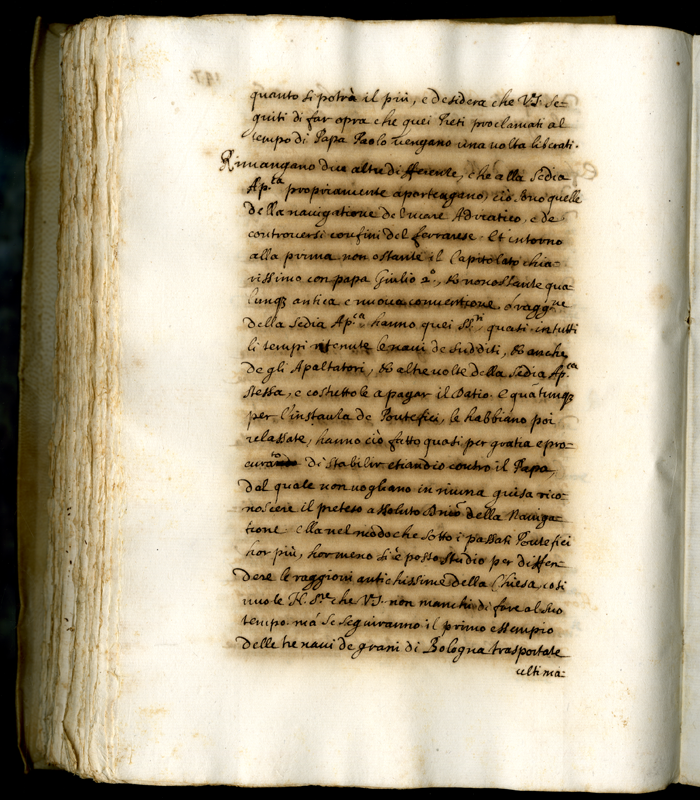 quanto si potrà il più, e desidera che V.S. se-
quiti di far opra che quei Preti proclamati al
tempo di Papa Paolo vengano una volta liberati.
Rimangano due altre differente, che alla Sedia
Ap.ca propriamente apartengano, ciò è quelle
della navigatione del mare Adriatico, e de
controversi confini del ferrarese. Et intorno
alla prima non ostante il Capitolato chia-
rissimo con papa Giulio 2.o, et nonostante qua-
lunq; antica e nuova conventione, ò raggne
della Sedia Ap.ca hanno quei SS.ri quasi in tutti
li tempi ritenute le navi de sudditi, et anche
de gli Apaltatori, et altre volte della Sedia Ap.ca
stessa, e costuttole a pagar il Datio. E quãtunq;
per l'instantia de Pontefici, le habbiano poi
relassate, hanno ciò fatto quasi per gratia e pro-
curato di stabilir etiandio contro il Papa,
dal quale non vogliano in niuna guisa rico-
noscere il preteso assoluto Dnio della Naviga-
tione. Ella nel modo che sotto i passati Pontefici
hor più, hor meno si è posto studio per diffen-
dere le raggioni antichissime della Chiesa, così
vuole N. S.re che V.S. non manchi di fare al suo
tempo. mà se seguiranno il primo essempio
delle tre navi de grani di Bologna trasportate
ultima-